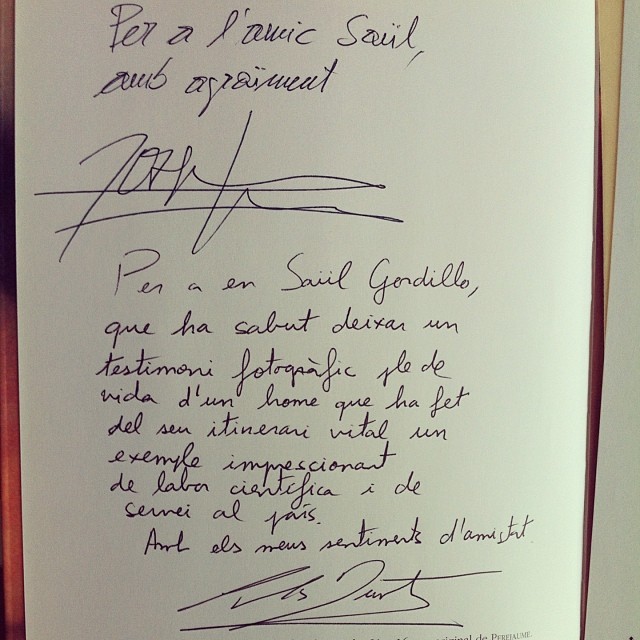 Per a l'amic Saül,
amb agraïment
Per a en Saül Gordillo,
que ha sabut deixar un
testimoni fotogràfic ple de
vida d'un home que ha fet
del seu itinerari vital un
exemple impressionant
de labor científica i de
servei al país.
Amb els meus sentiments d'amistat.
original de PEREJAUME.